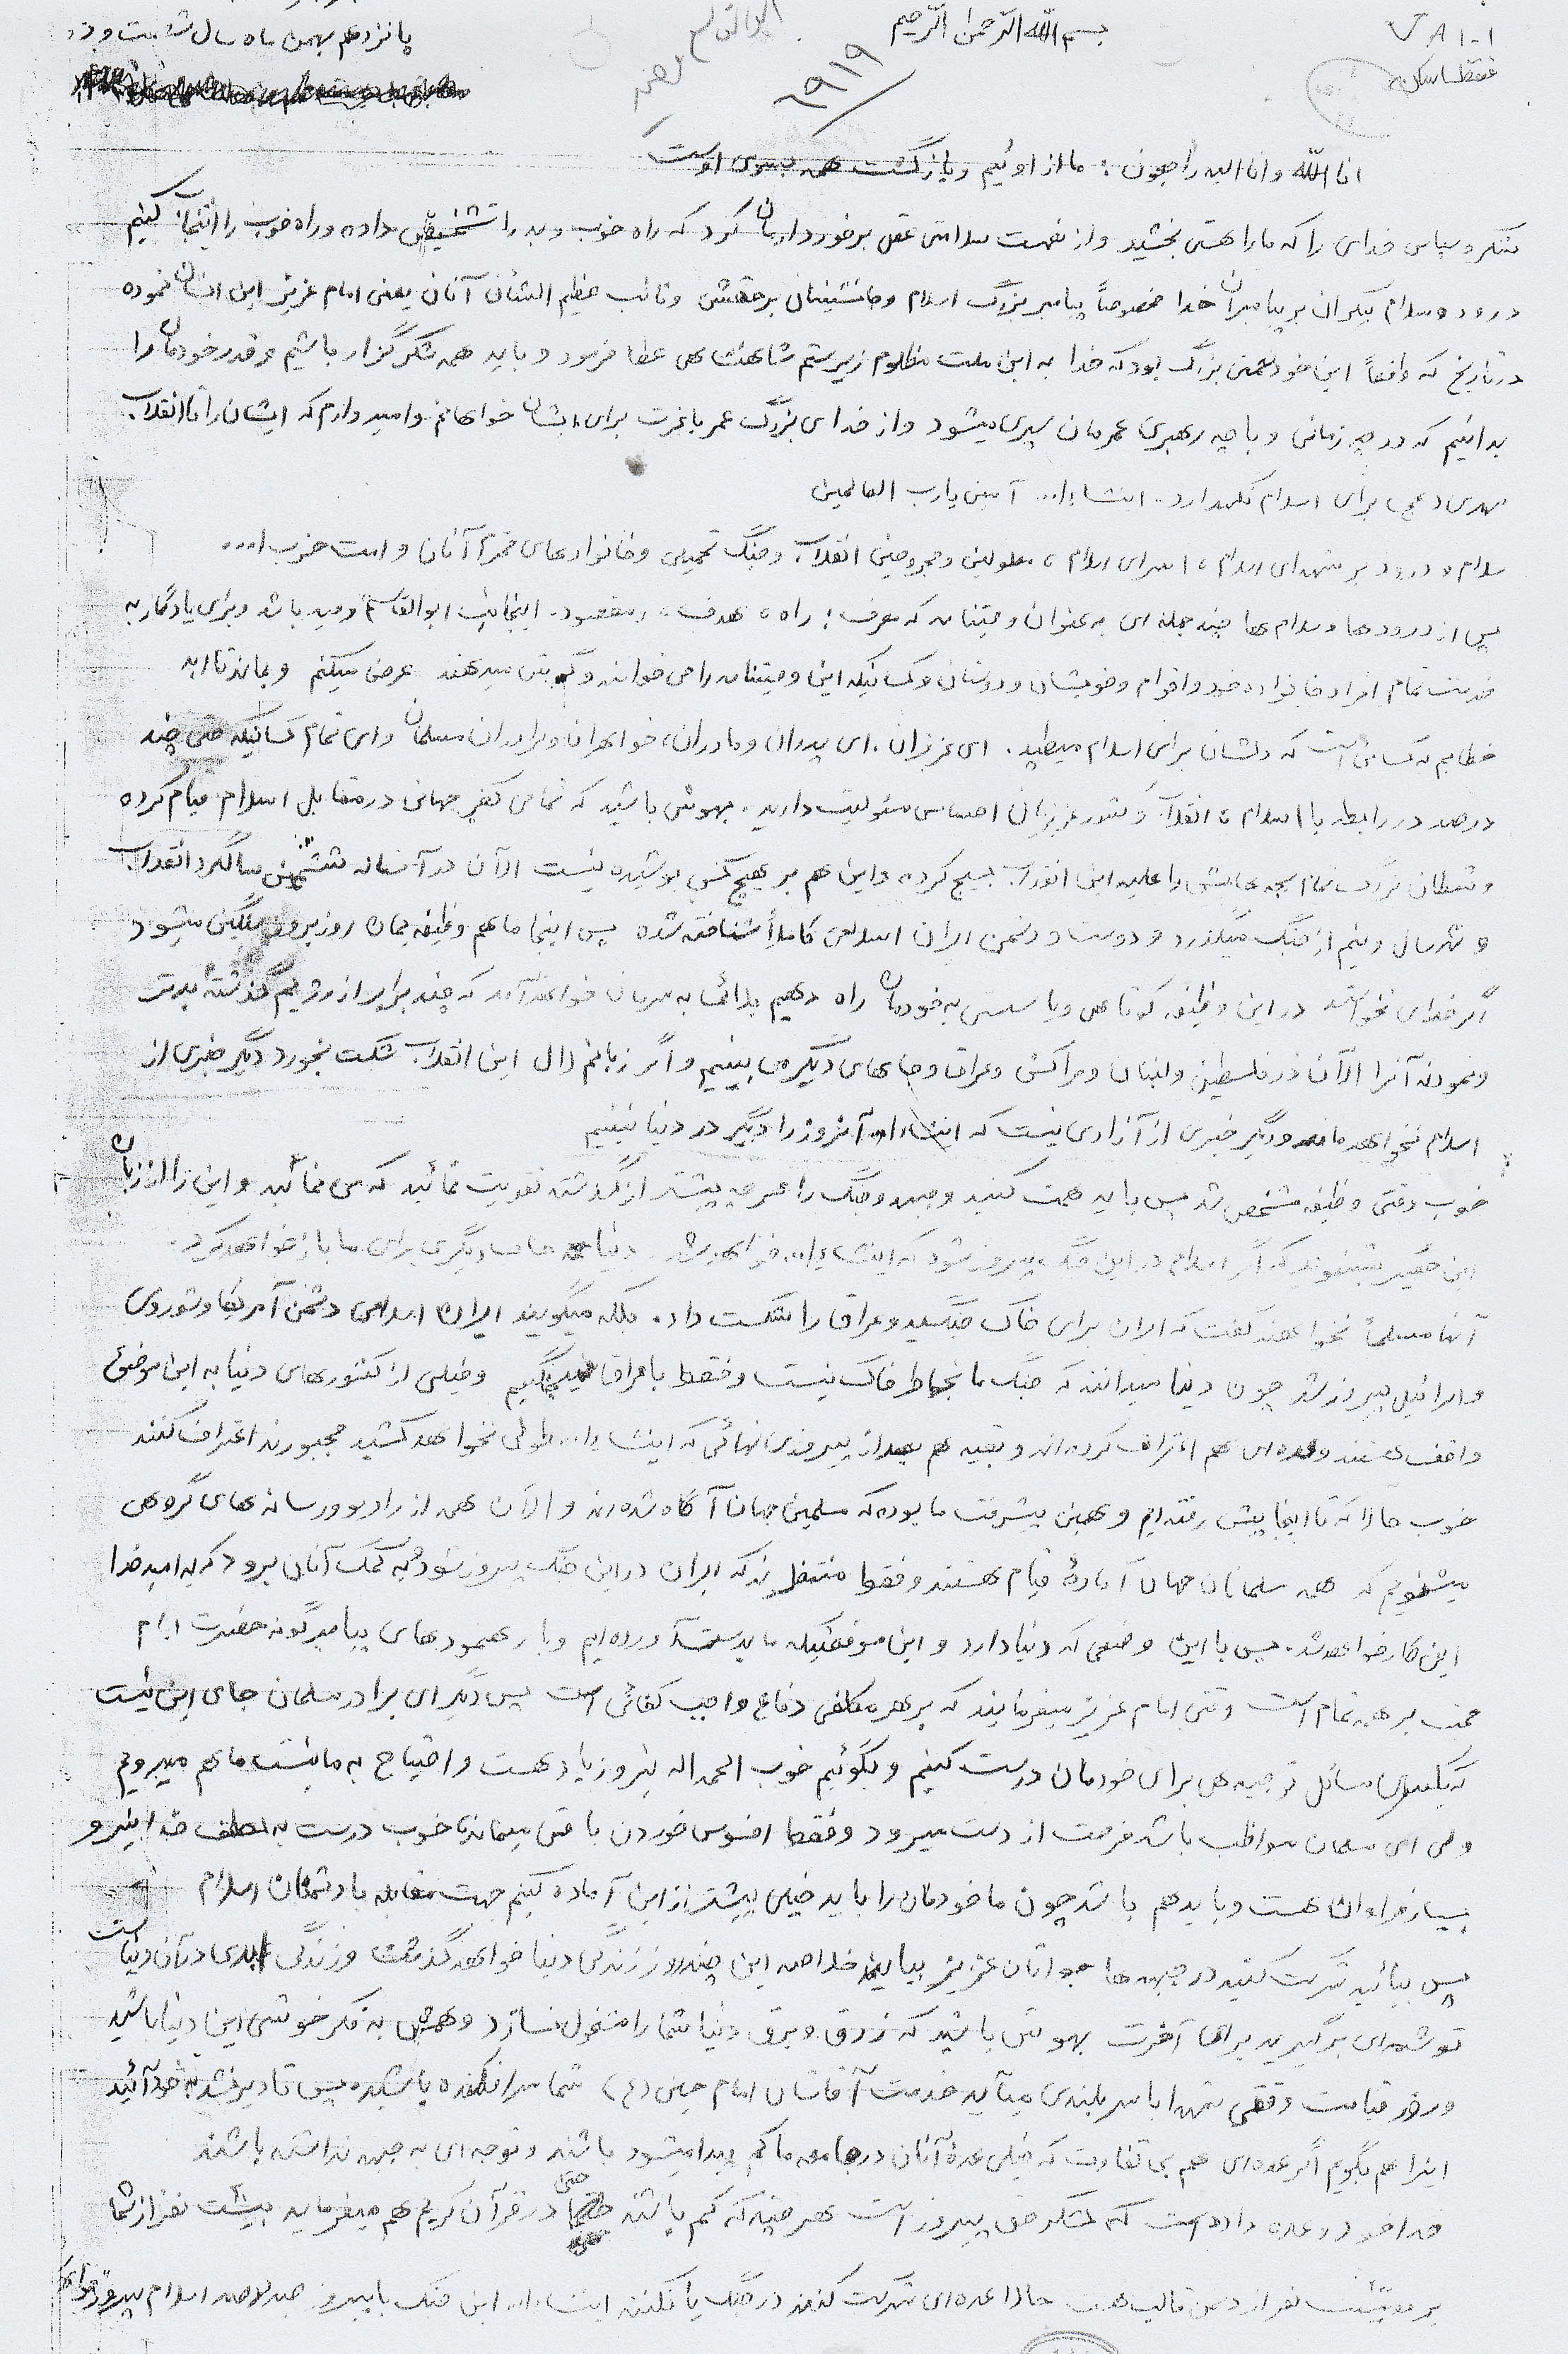 بسم الله الرحمن الرحیم
پانزدهم بهمن ماه سال شصت و
۷۸۱۰۱
فقط اسکن
۶۹۱۹
انا الله و انا الیه راجعون : ما از اوئیم و بازگشت همه بسوی اوست
شکر و سپاس خدای را که ما را هستی بخشید و از نعمت سلامتی عقل برخوردارمان کرد که راه خوب و بد را تشخیص داده و راه خوب را انتخاب کنیم
درود و سلام بیکران بر پیامبران خدا خصوصاً پیامبر بزرگ اسلام و جانشینان برحقش و نائب عظیم الشأن آنان یعنی امام عزیز این انسان نموده
در تاریخ که واقعاً این خود نعمتی بزرگ بود که خدا به این ملت مظلوم زیر ستم شاهنشاهی عطا فرمود و باید همه شکرگزار باشیم و قدر خودمان را
بدانیم که در چه زمانی و با چه رهبری عمرمان سپری میشود و از خدای بزرگ عمر باعزت برای ایشان خواهانم و امیدوارم که ایشان را تا انقلاب
مهدی (عج) برای اسلام نگهدارد . انشاءا... آمین یا رب العالمین
سلام و درود بر شهدای اسلام ، اسرای اسلام ، معلولین و مجروحین انقلاب و جنگ تحمیلی و خانوادهای محترم آنان و امت حزب ا...
پس از درودها و سلام ها چند جمله ای به عنوان وصیتنامه که معرف : راه ، هدف ، و مقصود اینجانب ابوالقاسم باشد و برای یادگار به
خدمت تمام افراد خانواده خود و اقوام و خویشان و دوستان و کسانیکه این وصیتنامه را می خوانند و گوش میدهند عرض میکنم و بماند تا ابد
خطابم به کسانی است که دلشان برای اسلام میطپد . ای عزیزان ، ای پدران و مادران ، خواهران و برادران مسلمان و ای تمام کسانیکه حتی چند
درصد در رابطه با اسلام ، انقلاب و کشور عزیزتان احساس مسئولیت دارید . بهوش باشید که تمامی کفر جهانی در مقابل اسلام قیام کرده
و شیطان بزرگ تمام بچه هایش را علیه این انقلاب بسیج کرده و این هم بر هیچ کس پوشیده نیست الآن در آستانه ششمین سالگرد انقلاب
و سال و نیم از جنگ میگذرد و دوست و دشمن ایران اسلامی کاملاً شناخته شده پس اینجا ما هم وظیفه مان روز بروز سنگین میشود
اگر خدای نخواسته در این وظیفه کوتاهی و یا سستی به خودمان راه دهیم بلائی به سرمان خواهد آمد که چند برابر از رژیم گذشته بدتر
و نمونه آنرا الآن در فلسطین و لبنان و مراکش و عراق و جاهای دیگر می بینیم و اگر زبانم لال این انقلاب شکست بخورد دیگر خبری از
اسلام نخواهد ماند و دیگر خبری از آزادی نیست که انشاءا... آنروز را دیگر در دنیا نبینیم
خوب وقتی وظیفه مشخص شد پس باید همت کنید و جبهه و جنگ را هر چه بیشتر از گذشته تقویت نمائید که می نمائید و این را از زبان
این حقیر بشنوید که اگر اسلام در این جنگ پیروز شود که انشاءا... خواهد شد دنیا حساب دیگری برای ما باز خواهد کرد .
آنها مسلماً نخواهند گفت که ایران برای خاک جنگید و عراق را شکست داد . بلکه میگویند ایران اسلامی دشمن آمریکا و شوروی
و اسرائیل پیروز شد چون دنیا میدانند که جنگ ما بخاطر خاک نیست و فقط با عراق نمیجنگیم و خیلی از کشورهای دنیا به این موضوع
واقف هستند و عده ای هم اعتراف کرده اند و بقیه هم بعد از پیروزی نهائی که انشاءا... طولی نخواهد کشید مجبورند اعتراف کنند
خوب حالا که تا اینجا پیش رفته ایم و همین پیشرفت ما بوده که مسلمین جهان آگاه شده اند و الآن همه از رادیو و رسانه های گروهی
میشنویم که همه مسلمانان جهان آمادۀ قیام هستند و فقط منتظرند که ایران در این جنگ پیروز شود و به کمک آنان برود که به امید خدا
این کار خواهد شد . پس با این وضعی که دنیا دارد و این موقعیتیکه ما بدست آورده ایم و با رهنمودهای پیامبرگونه حضرت امام
حجت بر همه تمام است وقتی امام عزیز میفرمایند که بر هر مکلفی دفاع واجب کفائی است پس دیگر ای برادر مسلمان جای این نیست
که یکسری مسائل توجیه می برای خودمان درست کنیم و بگوئیم خوب الحمداله نیرو زیاد هست و احتیاج به ما نیست ما هم میرویم
ولی ای مسلمان مواظب باش فرصت از دست میرود و فقط افسوس خوردن باقی میماند خوب درست به لطف خدا نیرو
بسیار فراوان هست و باید هم باشد چون ما خودمان را باید خیلی بیشتر از این آماده کنیم جهت مقابله با دشمنان اسلام
پس بیائید شرکت کنید در جبهه ها جوانان عزیز بیائید خلاصه این چند روز زندگی دنیا خواهد گذشت و زندگی ابدی در آن دنیا است
توشه ای برگیرید برای آخرت بهوش باشید که زرق و برق دنیا شما را مشغول نسازد و همش به فکر خوشی این دنیا باشید
و روز قیامت وقتی شهدا با سربلندی میآیند خدمت آقاشان امام حسین (ع) شما سرافکنده باشید پس تا دیر نشده بخود آئید
اینرا هم بگویم اگر عده ای هم بی تفاوت که خیلی عدۀ آنان در جامعه ما کم پیدا میشود باشند و توجه ای به جبهه نداشته باشند
خدا خود وعده داده است که لشکر حق پیروز است هر چند که کم باشند حتی در قرآن کریم هم میفرماید بیست نفر از شما
بر دویست نفر از دشمن غالب هست حالا عده ای شرکت کنند در جنگ یا نکنند انشاءا... این جنگ با پیروزی صددرصد اسلام پیروز خواهد